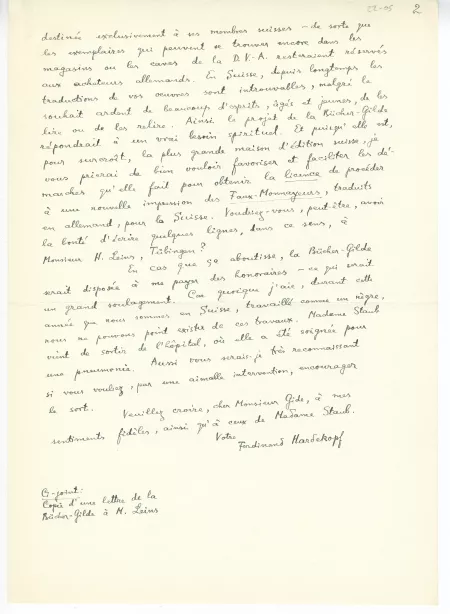 22-95
2
destinée exclusivement à ses membres suisses - de sorte que
les exemplaires qui peuvent se trouver encore dans les
magasins ou les caves de la D.V.A. resteraient réservés
aux acheteurs allemands. En Suisse, depuis longtemps les
traductions de vos œuvres sont introuvables, malgré le
souhait ardent de beaucoup d'esprits, âgés et jeunes, de les
lire ou de les relire. Ainsi, le projet de la Bücher-Gilde
répondrait à un vrai besoin spirituel. Et puisqu'elle est,
pour surcroît, la plus grande maison d'édition suisse, je
vous prierai de bien vouloir favoriser et faciliter les dé-
marches qu'elle fait pour obtenir la licence de procéder
à une nouvelle impression des Faux-Monnayeurs, traduits
en allemand, pour la Suisse. Voudriez-vous, peut-être, avoir
la bonté d'écrire quelques lignes, dans ce sens, à
Monsieur H. Leins, Tübingen?
En cas que ça aboutisse, la Bücher-Gilde
serait disposée à me payer des honoraires - ce qui serait
un grand soulagement. Car quoique j'aie, durant cette
année que nous sommes en Suisse, travaillé comme un nègre,
nous ne pouvons point exister de ces travaux. Madame Staub
vient de sortir de l'hôpital, où elle a été soignée pour
une pneumonie. Aussi vous serais-je très reconnaissant
si vous vouliez, par une aimable intervention, encourager
le sort. Veuillez croire, cher Monsieur Gide, à mes
sentiments fidèles, ainsi qu'à ceux de Madame Staub.
Votre
Ferdinand Hardekopf
Ci-joint:
Copie d'une lettre de la
Bücher-Gilde à M. Leins